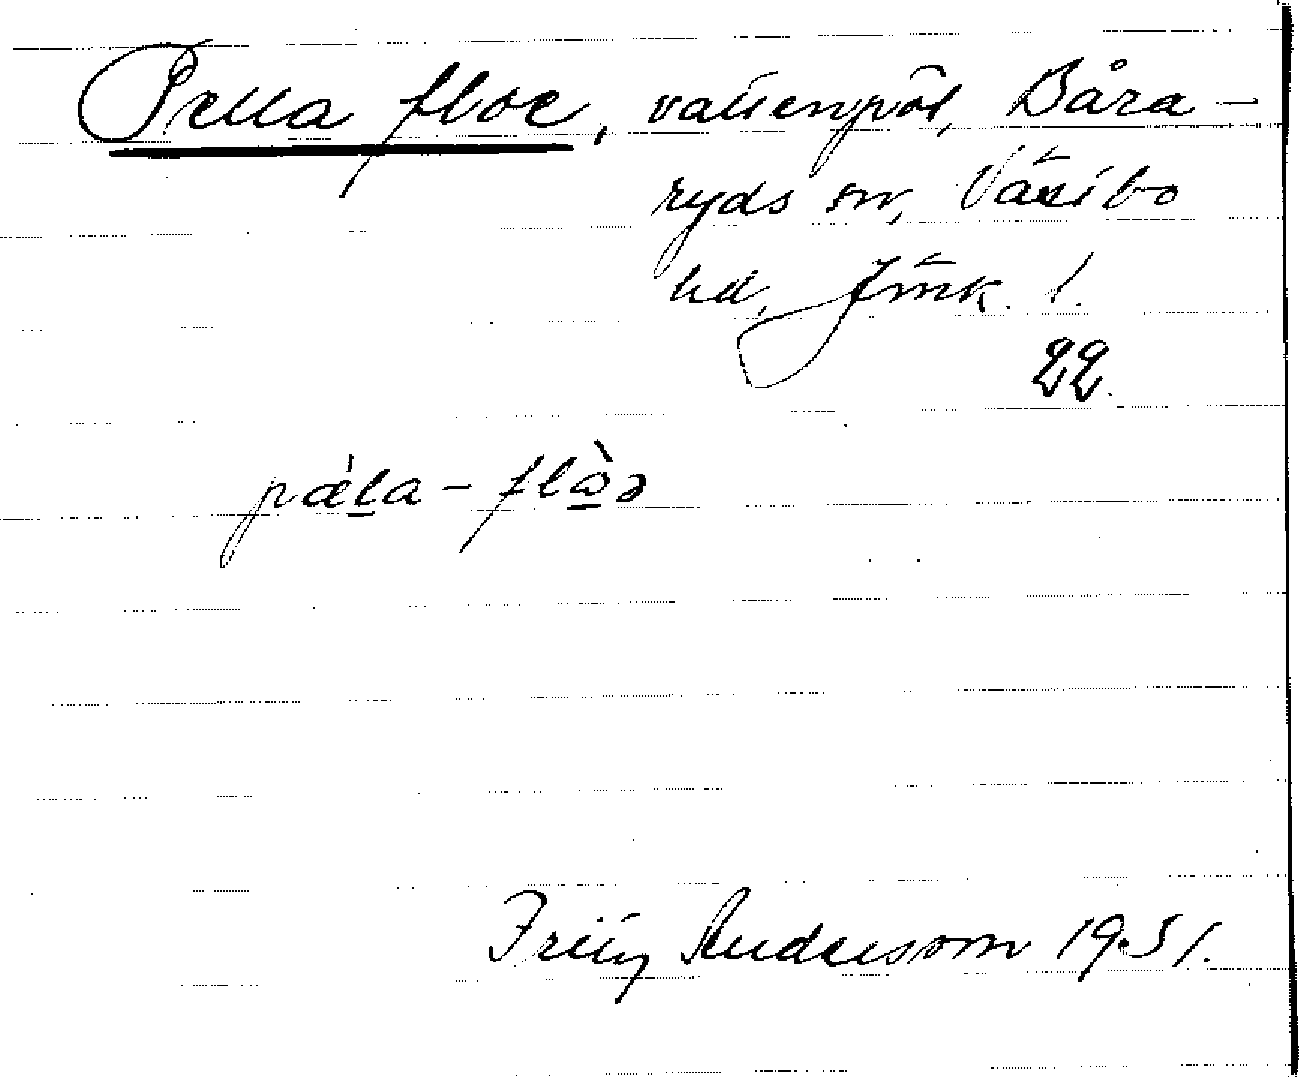 Pella floe, vattenpöl, Båra-
ryds sn, Västbo
hd, Jönk. l.
22.
pæ̀la - flòə
Fritz Andersson 1931.